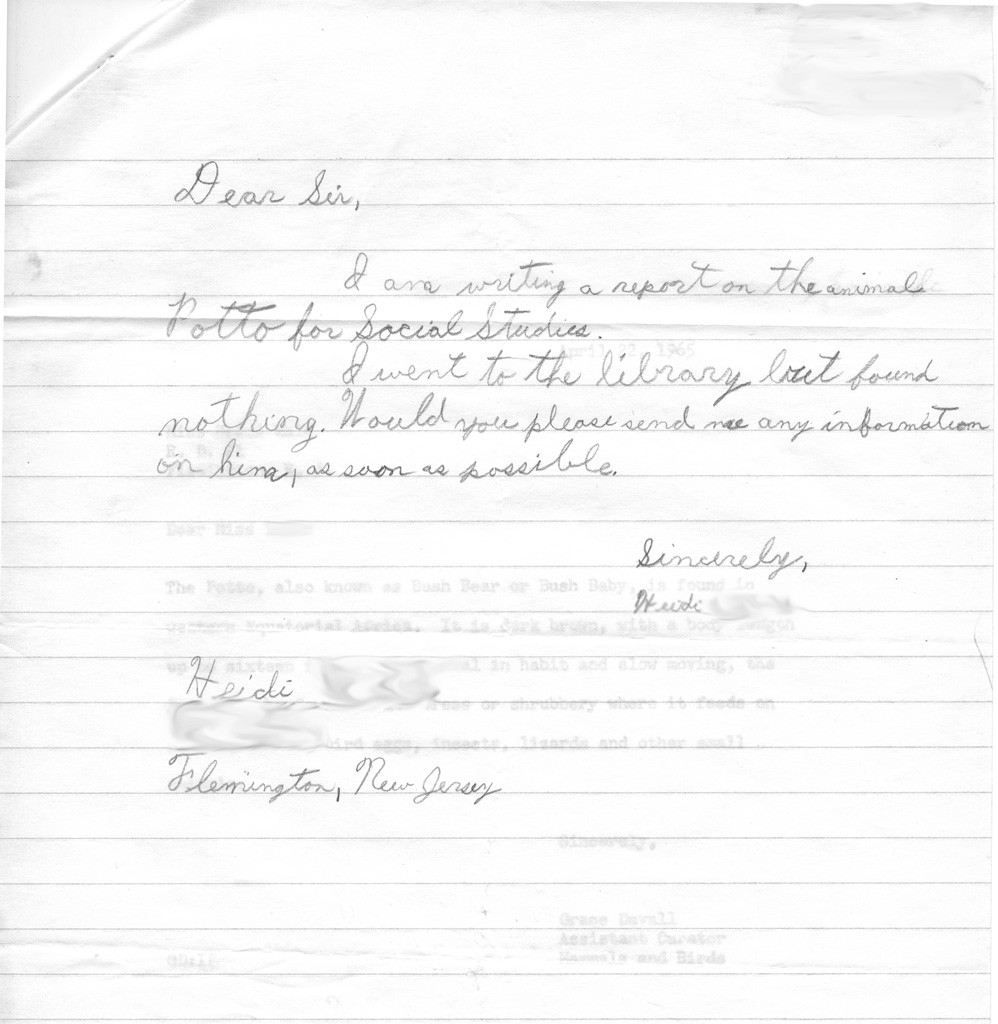 Dear Sir,
I am writing a report on the animal
Potto for Social Studies.
April 22, 1965
I went to the library but found
nothing. Would you please send me any information
R. D.
on him, as soon as possible.
Dear Miss
Sincerely,
The Potto, also known as Bush Bear or Bush Baby, is found in
Heidi
western Equatorial Africa. It is dark brown, with a body length
up sixteen in habit and slow moving, the
Heidi
trees or shrubbery where it feeds on
bird eggs, insects, lizards and other small
Flemington, New Jersey
Sincerely,
Grace Davall
Assistant Curator
Mammals and Birds